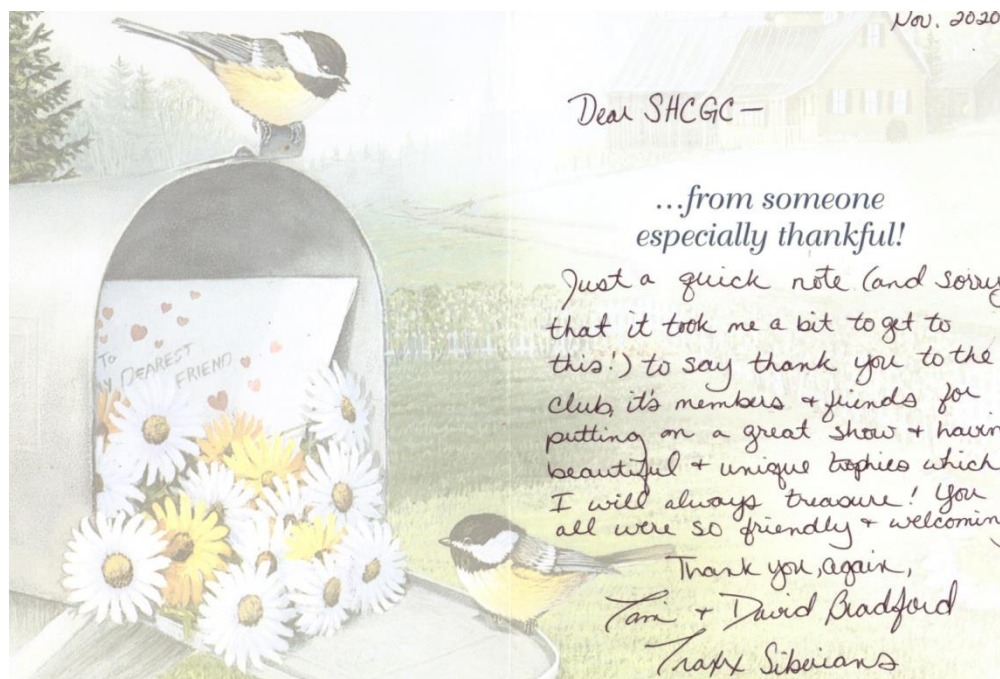 Nov. 2020
Dear SHCGC—
...from someone
especially thankful!
Just a quick note (and sorry
that it took me a bit to get to
this!) to say thank you to the
club, it's members + friends for
putting on a great show + havin
beautiful + unique trophies which
I will always treasure! You
all were so friendly + welcomin
Thank you, again,
Tami + David Bradford
Traxx Siberians
TO
DEAREST
FRIEND